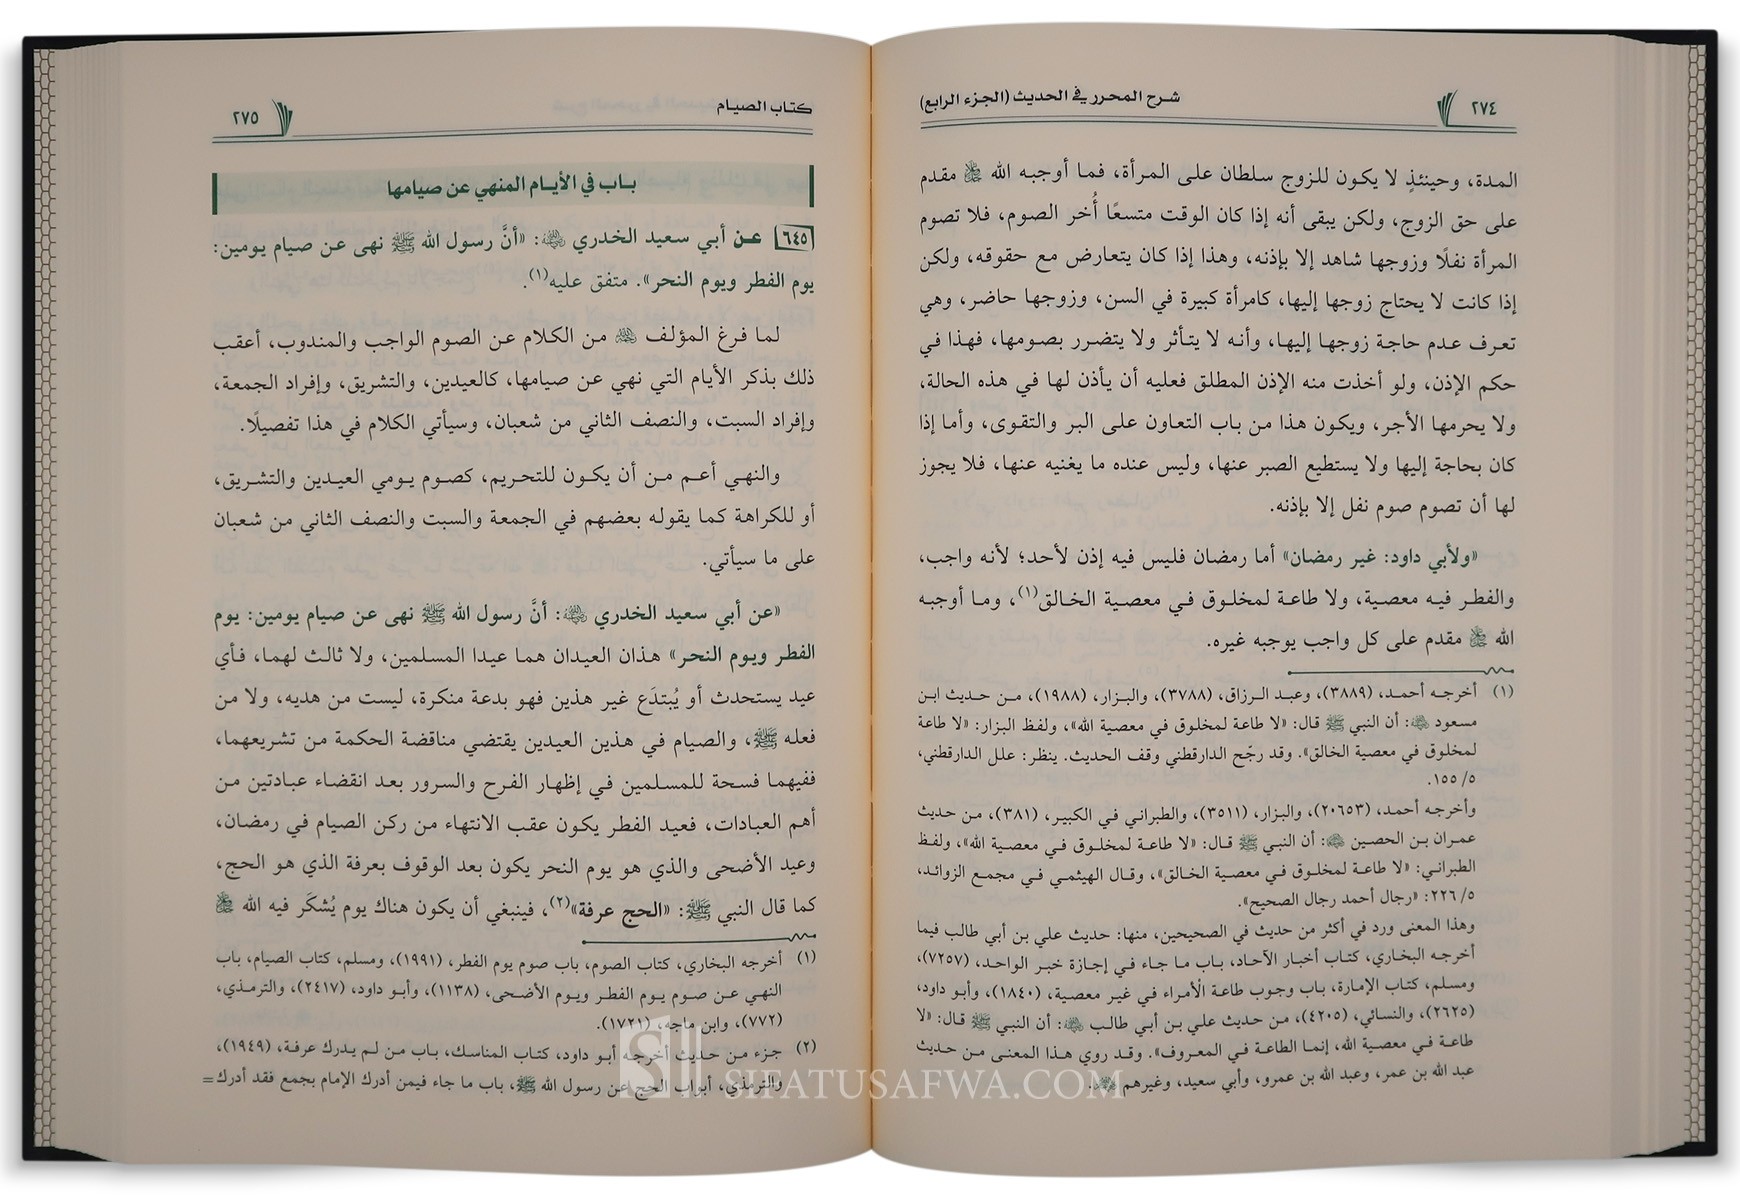 ٢٧٤
شرح المحرر في الحديث (الجزء الرابع)
المدة، وحينئذٍ لا يكون للزوج سلطان على المرأة، فما أوجبه الله ﷻ مقدم
على حق الزوج، ولكن يبقى أنه إذا كان الوقت متسعًا أُخر الصوم، فلا تصوم
المرأة نفلًا وزوجها شاهد إلا بإذنه، وهذا إذا كان يتعارض مع حقوقه، ولكن
إذا كانت لا يحتاج زوجها إليها، كامرأة كبيرة في السن، وزوجها حاضر، وهي
تعرف عدم حاجة زوجها إليها، وأنه لا يتأثر ولا يتضرر بصومها، فهذا في
حكم الإذن، ولو أخذت منه الإذن المطلق فعليه أن يأذن لها في هذه الحالة،
ولا يحرمها الأجر، ويكون هذا من باب التعاون على البر والتقوى، وأما إذا
كان بحاجة إليها ولا يستطيع الصبر عنها، وليس عنده ما يغنيه عنها، فلا يجوز
لها أن تصوم صوم نفل إلا بإذنه.
«ولأبي داود: غير رمضان» أما رمضان فليس فيه إذن لأحد؛ لأنه واجب،
والفطر فيه معصية، ولا طاعة لمخلوق في معصية الخالق(١)، وما أوجبه
الله ﷻ مقدم على كل واجب يوجبه غيره.
(١) أخرجه أحمد، (٣٨٨٩)، وعبد الرزاق، (٣٧٨٨)، والبزار، (١٩٨٨)، من حديث ابن
مسعود ﵁: أن النبي ﷺ قال: «لا طاعة لمخلوق في معصية الله»، ولفظ البزار: «لا طاعة
لمخلوق في معصية الخالق». وقد رجّح الدارقطني وقف الحديث. ينظر: علل الدارقطني،
٥/ ١٥٥.
وأخرجه أحمد، (٢٠٦٥٣)، والبزار، (٣٥١١)، والطبراني في الكبير، (٣٨١)، من حديث
عمران بن الحصين ﵁: أن النبي ﷺ قال: «لا طاعة لمخلوق في معصية الله»، ولفظ
الطبراني: «لا طاعة لمخلوق في معصية الخالق»، وقال الهيثمي في مجمع الزوائد،
٥/ ٢٢٦: «رجال أحمد رجال الصحيح».
وهذا المعنى ورد في أكثر من حديث في الصحيحين، منها: حديث علي بن أبي طالب فيما
أخرجه البخاري، كتاب أخبار الآحاد، باب ما جاء في إجازة خبر الواحد، (٧٢٥٧)،
ومسلم، كتاب الإمارة، باب وجوب طاعة الأمراء في غير معصية، (١٨٤٠)، وأبو داود،
(٢٦٢٥)، والنسائي، (٤٢٠٥)، من حديث علي بن أبي طالب ﵁: أن النبي ﷺ قال: «لا
طاعة في معصية الله، إنما الطاعة في المعروف». وقد روي هذا المعنى من حديث
عبد الله بن عمر، وعبد الله بن عمرو، وأبي سعيد، وغيرهم ﵃.
كتاب الصيام
٢٧٥
باب في الأيام المنهي عن صيامها
٦٤٥ عن أبي سعيد الخدري ﵁: «أنَّ رسول الله ﷺ نهى عن صيام يومين:
يوم الفطر ويوم النحر». متفق عليه(١).
لما فرغ المؤلف ﵀ من الكلام عن الصوم الواجب والمندوب، أعقب
ذلك بذكر الأيام التي نهي عن صيامها، كالعيدين، والتشريق، وإفراد الجمعة،
وإفراد السبت، والنصف الثاني من شعبان، وسيأتي الكلام في هذا تفصيلًا.
والنهي أعم من أن يكون للتحريم، كصوم يومي العيدين والتشريق،
أو للكراهة كما يقوله بعضهم في الجمعة والسبت والنصف الثاني من شعبان
على ما سيأتي.
«عن أبي سعيد الخدري ﵁: أنَّ رسول الله ﷺ نهى عن صيام يومين: يوم
الفطر ويوم النحر» هذان العيدان هما عيدا المسلمين، ولا ثالث لهما، فأي
عيد يستحدث أو يُبتدَع غير هذين فهو بدعة منكرة، ليست من هديه، ولا من
فعله ﷺ، والصيام في هذين العيدين يقتضي مناقضة الحكمة من تشريعهما،
ففيهما فسحة للمسلمين في إظهار الفرح والسرور بعد انقضاء عبادتين من
أهم العبادات، فعيد الفطر يكون عقب الانتهاء من ركن الصيام في رمضان،
وعيد الأضحى والذي هو يوم النحر يكون بعد الوقوف بعرفة الذي هو الحج،
كما قال النبي ﷺ: «الحج عرفة»(٢)، فينبغي أن يكون هناك يوم يُشكَر فيه الله ﷻ
(١) أخرجه البخاري، كتاب الصوم، باب صوم يوم الفطر، (١٩٩١)، ومسلم، كتاب الصيام، باب
النهي عن صوم يوم الفطر ويوم الأضحى، (١١٣٨)، وأبو داود، (٢٤١٧)، والترمذي،
(٧٧٢)، وابن ماجه، (١٧٢١).
(٢) جزء من حديث أخرجه أبو داود، كتاب المناسك، باب من لم يدرك عرفة، (١٩٤٩)،
والترمذي، أبواب الحج عن رسول الله ﷺ، باب ما جاء فيمن أدرك الإمام بجمع فقد أدرك=
SIFATUSAFWA.COM